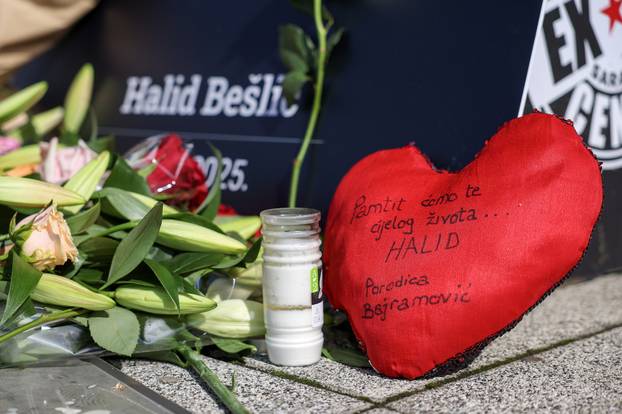 Halid Bešlić
2025.
EX
SARA
CEN
Pamtit ćemo te
cijelog života...
HALID
Porodica
Bajramović